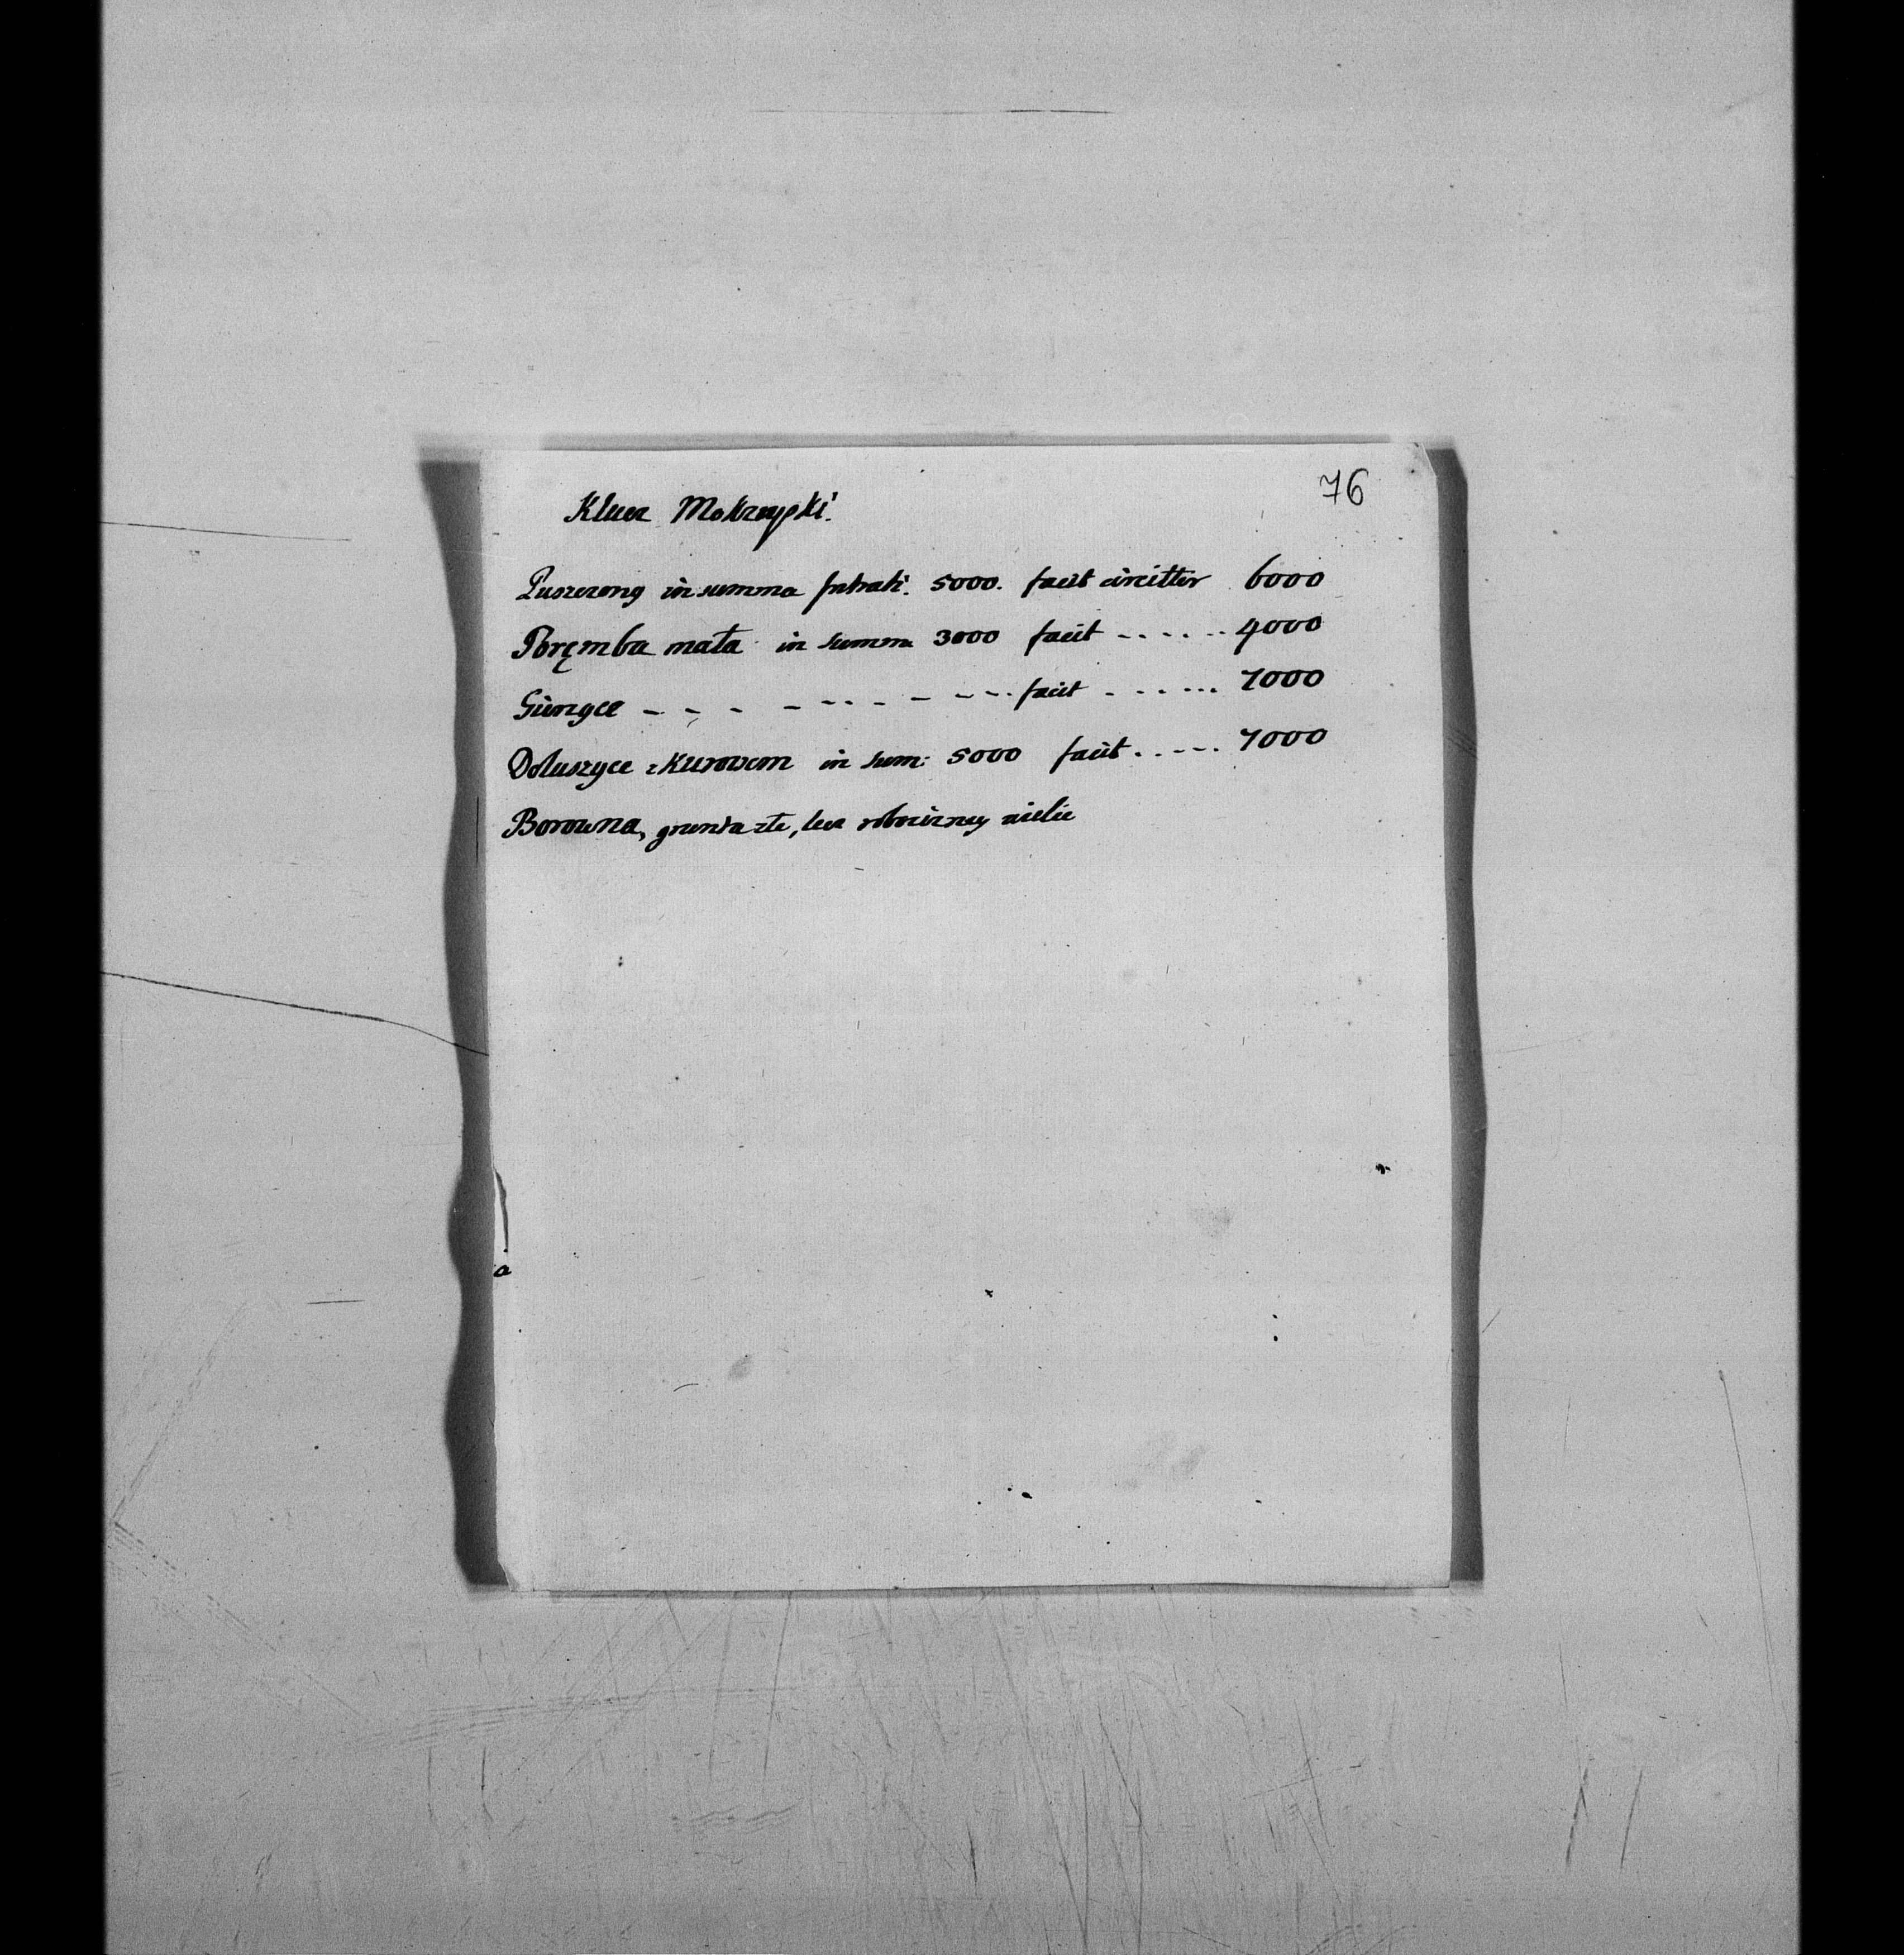 76
Klucz Mokrzyski.
Puszczony in summa 5000. facit circitter 6000
Poręmba mała in summa 3000 facit - - . - . - - 4000
Gierzyce - - - - - - - - - - - . facit - - - - . . . 7000
Doluszyce z Kurowem in sum: 5000 facit . . - - - . 7000
Borowna, grunta złe, lecz robocizney wielie